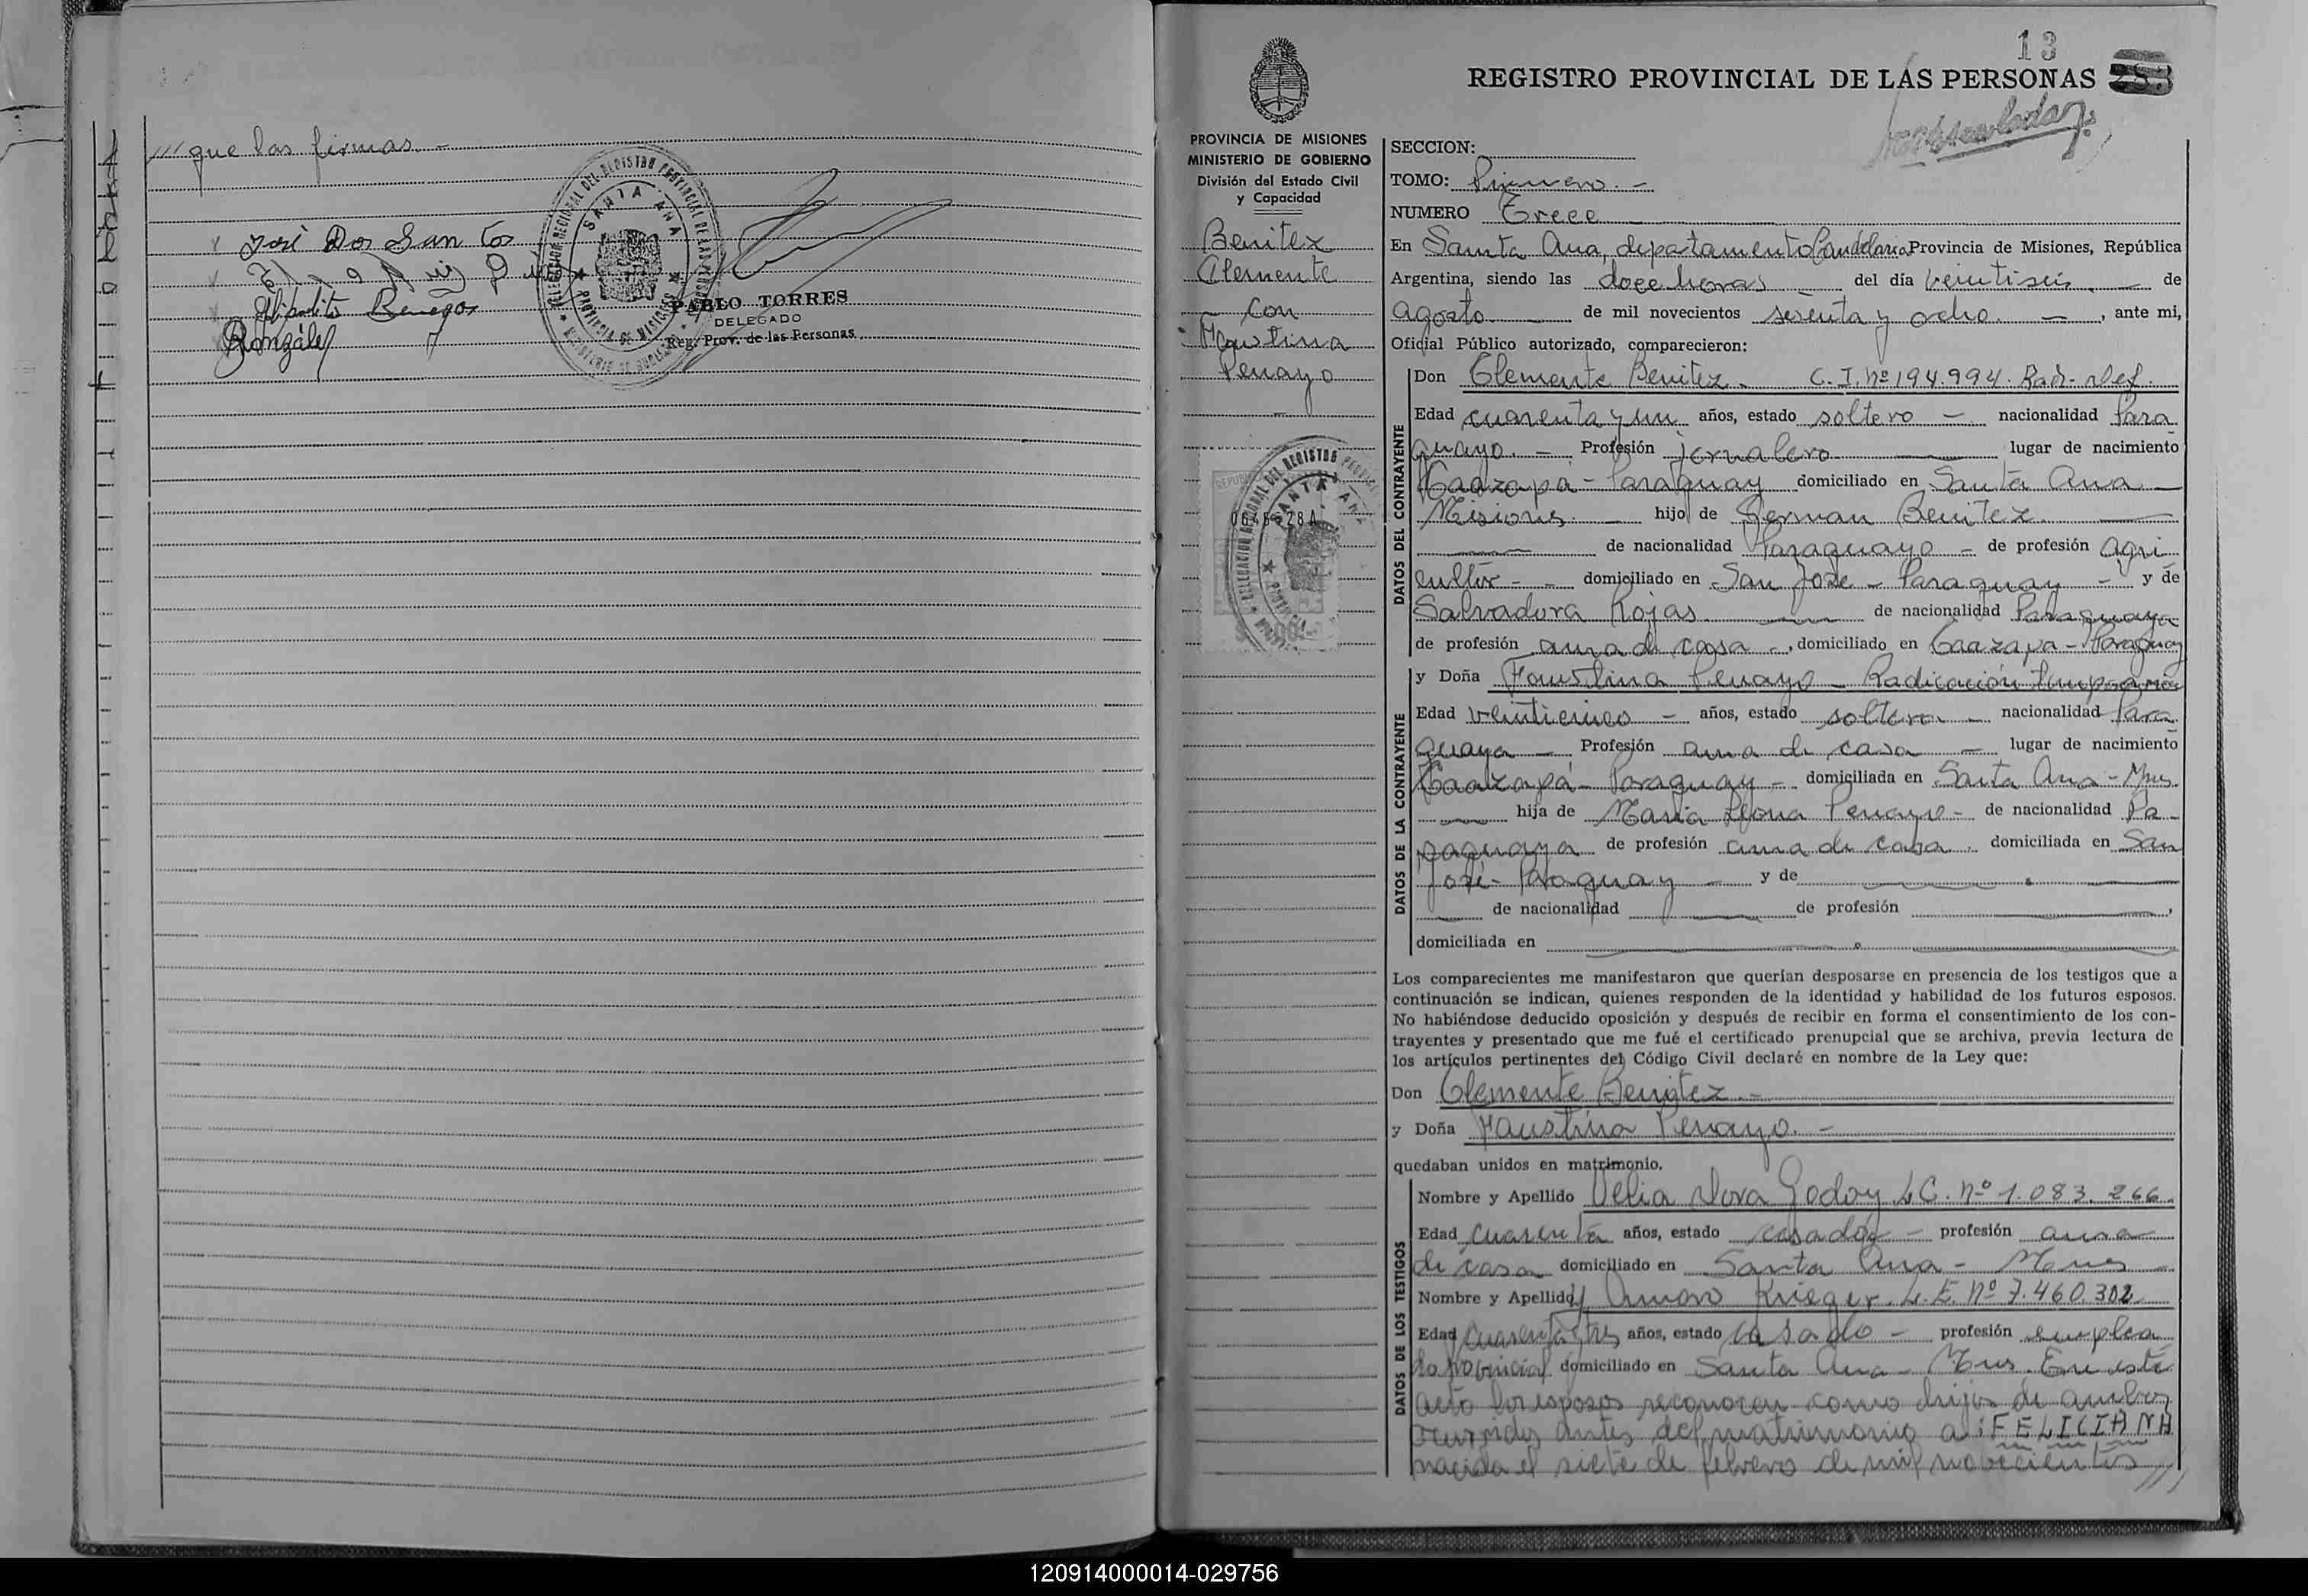 /// que las firmas. -
José Dos Santos
Hipolito Benegas
González
DELEGACION REGIONAL DEL REGISTRO PROVINCIAL DE LAS PERSONAS
SANTA ANA
PROVINCIA DE MISIONES
PABLO TORRES
DELEGADO
Reg. Prov. de las Personas
13
REGISTRO PROVINCIAL DE LAS PERSONAS 283
PROVINCIA DE MISIONES
MINISTERIO DE GOBIERNO
División del Estado Civil
y Capacidad
Benitez
Clemente
con
Faustina
Penayo
SECCION:
TOMO: Primero. -
NUMERO Trece
En Santa Ana, departamento Candelaria Provincia de Misiones, República
Argentina, siendo las doce horas - del día veintiseis - de
Agosto - de mil novecientos sesenta y ocho. - , ante mi,
Oficial Público autorizado, comparecieron:
DATOS DEL CONTRAYENTE
Don Clemente Benitez - C. I. Nº 194.994. Rad. Def.
Edad cuarenta y un años, estado soltero - nacionalidad Para
guayo. - Profesión jornalero lugar de nacimiento
Caazapá - Paraguay domiciliado en Santa Ana -
Misiones. - hijo de German Benitez.
de nacionalidad Paraguayo - de profesión Agri
cultor - - domiciliado en San José - Paraguay - y de
Salvadora Rojas. de nacionalidad Paraguaya
de profesión ama de casa -, domiciliado en Caazapa - Paraguay
DATOS DE LA CONTRAYENTE
y Doña Faustina Penayo - Radicación temporaria
Edad veinticinco - años, estado soltera - nacionalidad Para
guaya - Profesión ama de casa - lugar de nacimiento
Caazapá - Paraguay - domiciliada en Santa Ana - Mnes.
hija de Maria Penayo - de nacionalidad Pa
raguaya de profesión ama de casa. domiciliada en San
José - Paraguay - y de
de nacionalidad de profesión ,
domiciliada en
Los comparecientes me manifestaron que querían desposarse en presencia de los testigos que a
continuación se indican, quienes responden de la identidad y habilidad de los futuros esposos.
No habiéndose deducido oposición y después de recibir en forma el consentimiento de los con-
trayentes y presentado que me fué el certificado prenupcial que se archiva, previa lectura de
los artículos pertinentes del Código Civil declaré en nombre de la Ley que:
Don Clemente Benitez. -
y Doña Faustina Penayo. -
quedaban unidos en matrimonio.
DATOS DE LOS TESTIGOS
Nombre y Apellido Delia Nora Godoy L.C. Nº 1.083.266.
Edad cuarenta años, estado casada - profesión ama
de casa domiciliado en Santa Ana - Mnes -
Nombre y Apellido y Amaro Krieger. L.E. Nº 7.460.302
Edad cuarenta y tres años, estado casado - profesión emplea
do provincial domiciliado en Santa Ana - Mnes. En este
acto los esposos reconocen como hijos de ambos
ocurridos antes del matrimonio a: FELICIANA
nacida el siete de febrero de mil novecientos ///
120914000014-029756